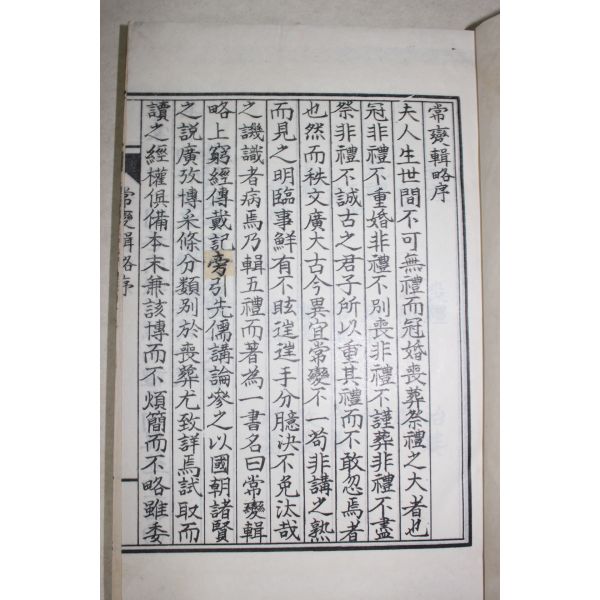 常變輯略序
夫人生世間不可無禮而冠婚喪葬祭禮之大者也
冠非禮不重婚非禮不別喪非禮不謹葬非禮不盡
祭非禮不誠古之君子所以重其禮而不敢忽焉者
也然而秩文廣大古今異宜常變不一苟非講之熟
而見之明臨事鮮有不眩逞逞手分臆決不免汰哉
之譏識者病焉乃輯五禮而著為一書名曰常變輯
略上窮經傳戴記旁引先儒講論參之以國朝諸賢
之説廣攷博采條分類別於喪葬尤致詳焉試取而
讀之經權俱備本末兼該博而不煩簡而不略雖委
常變輯略序